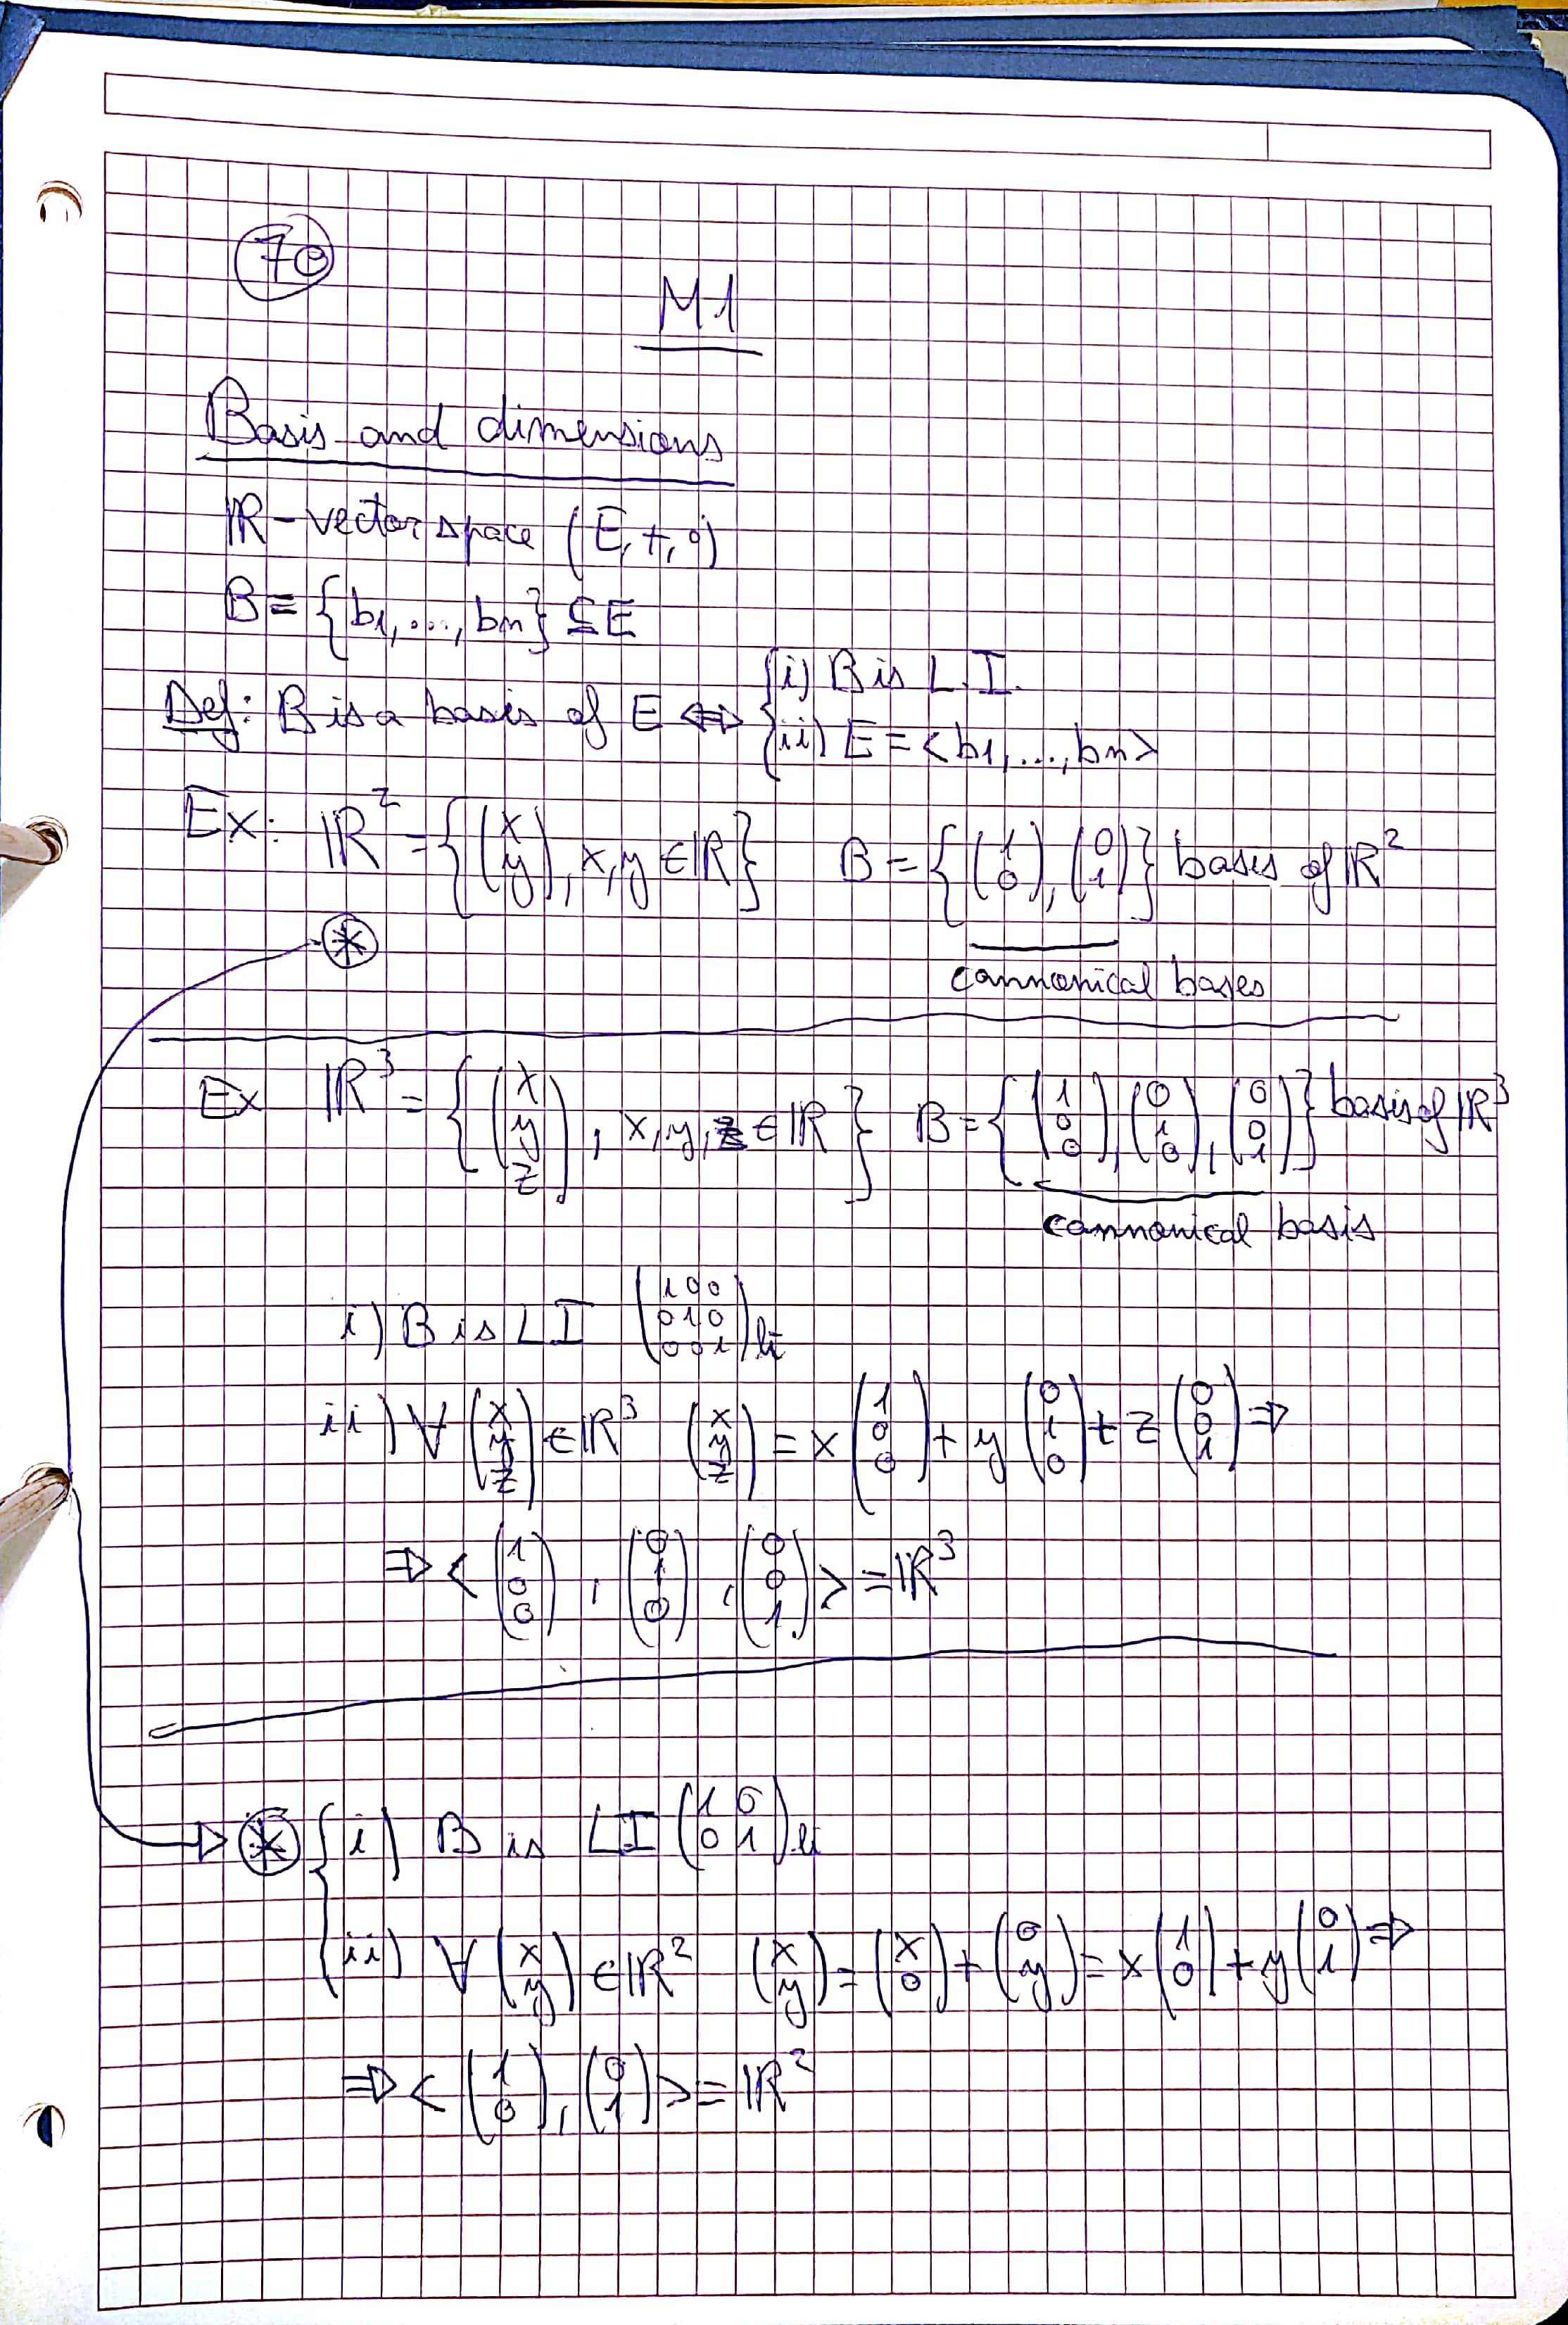 70
M1
Basis and dimensions
IR-vector space (E, +, ·)
B = {b1, ..., bn} ⊆ E
Def: B is a basis of E ⇔ { i) B is L.I. ii) E = <b1, ..., bn>
Ex: IR² = {(x y), x, y ∈ IR} B = {(1 0), (0 1)} bases of IR²
⊛
cannonical bases
Ex IR³ = {(x y z), x, y, z ∈ IR} B = {(1 0 0), (0 1 0), (0 0 1)} basis of IR³
cannonical basis
i) B is LI (1 0 0 0 1 0 0 0 1) li
ii) ∀ (x y z) ∈ IR³ (x y z) = x (1 0 0) + y (0 1 0) + z (0 0 1) ⇒
⇒ < (1 0 0), (0 1 0), (0 0 1) > = IR³
⊛ { i) B is LI (1 0 0 1) li
ii) ∀ (x y) ∈ IR² (x y) = (x 0) + (0 y) = x (1 0) + y (0 1) ⇒
⇒ < (1 0), (0 1) > = IR²